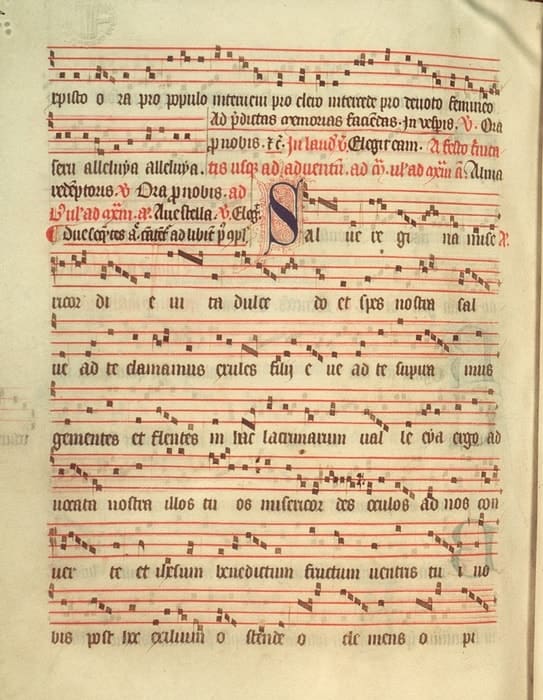 xpisto o ra pro populo interueni pro clero intercede pro deuoto femineo
Ad p̄dictas memorias faciēdas. In vesp̄is. V̄. Ora
p nobis. ⁊c̄. In laud V̄. Elegit eam. A festo trīta
sexu alleluya alleluya. tis usqƺ ad aduentū. ad
redēptoris. V̄ Ora p nobis. ad Alma
Aue stella. V̄. Eleḡ.
ad libit̄
Sal ue re gi na mise
ricor di e ui ta dulce do et spes nostra sal
ue ad te clamamus exules filij e ue ad te suspira mus
gementes et flentes in hac lacrimarum ual le eya ergo ad
uocata nostra illos tu os misericor des oculos ad nos con
uer te et ihesum benedictum fructum uentris tu i no
bis post hoc exilium o stende o cle mens o pi